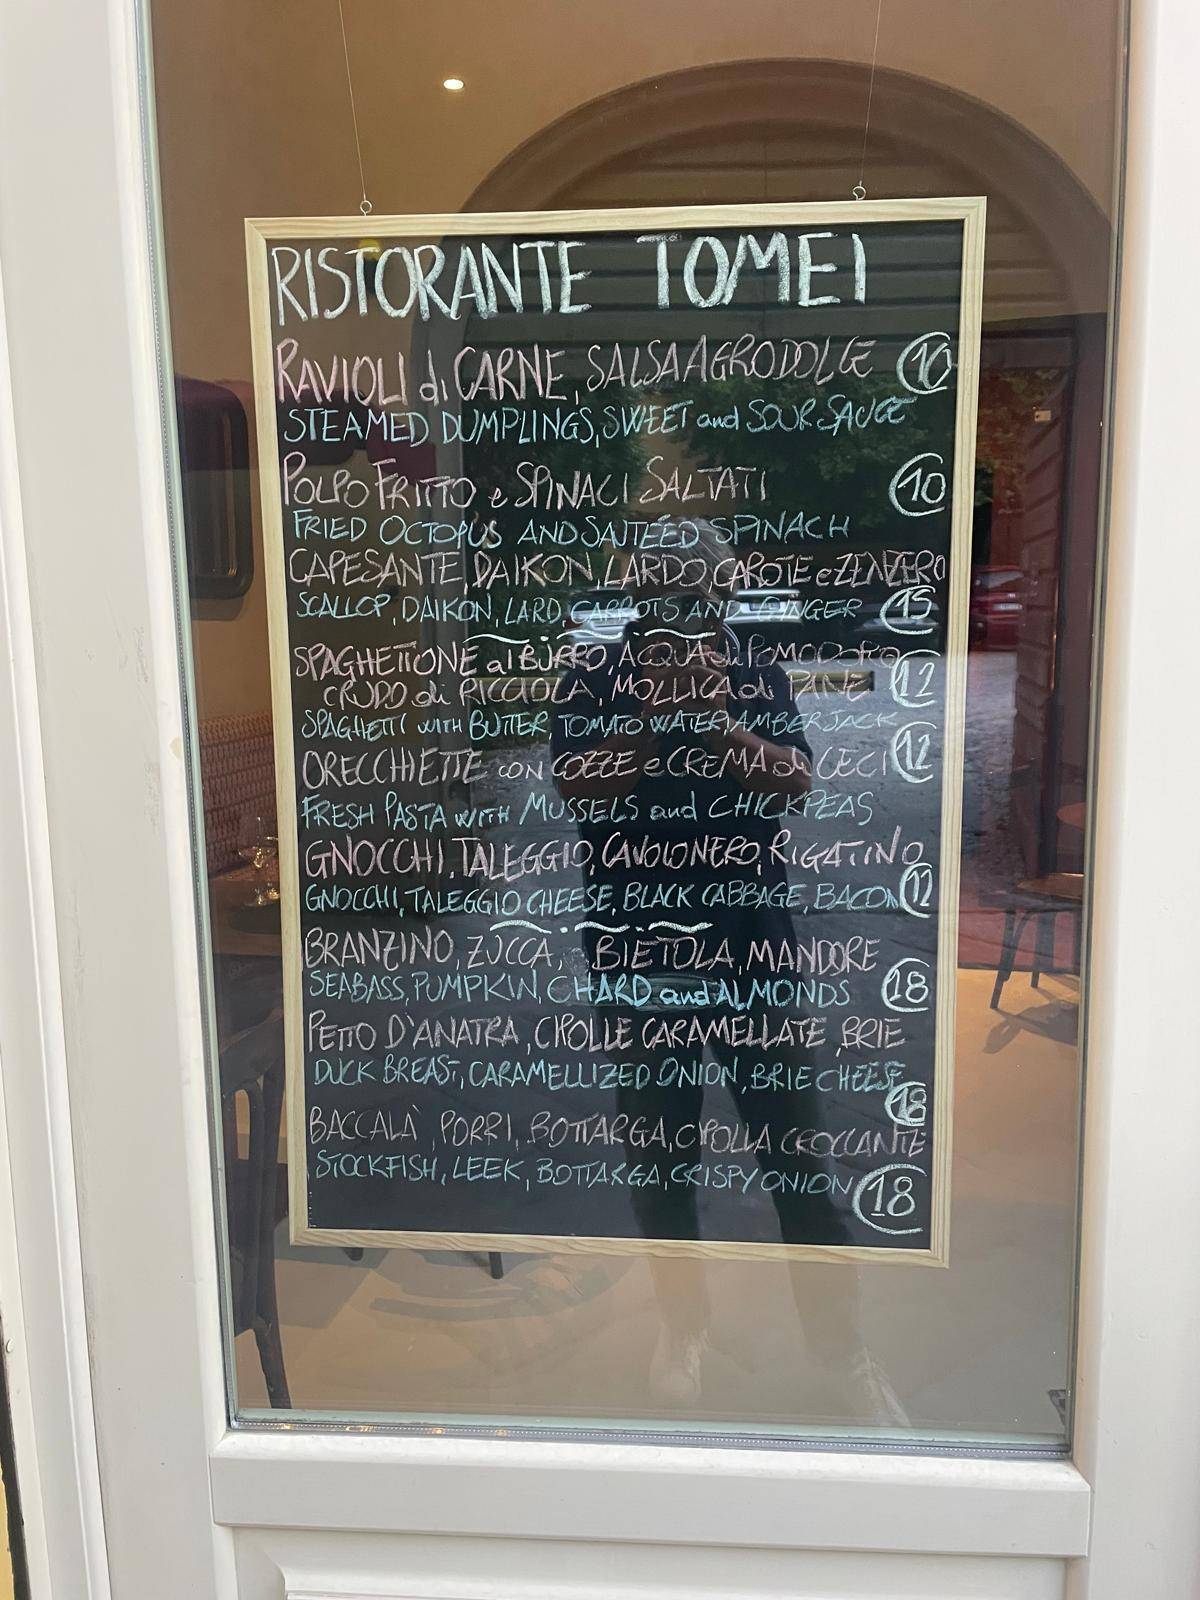 RISTORANTE TOMEI
RAVIOLI di CARNE, SALSA AGRODOLCE 10
STEAMED DUMPLINGS, SWEET and SOUR SAUCE
POLPO FRITTO e SPINACI SALTATI 10
FRIED OCTOPUS AND SAUTEED SPINACH
CAPESANTE, DAIKON, LARDO, CAROTE e ZENZERO
SCALLOP, DAIKON, LARD, CARROTS AND GINGER 15
SPAGHETTONE al BURRO, ACQUA di POMODORO
CRUDO di RICCIOLA, MOLLICA di PANE 12
SPAGHETTI WITH BUTTER, TOMATO WATER, AMBERJACK
ORECCHIETTE CON COZZE e CREMA di CECI 12
FRESH PASTA WITH MUSSELS and CHICKPEAS
GNOCCHI, TALEGGIO, CAVOLONERO, RIGATINO
GNOCCHI, TALEGGIO CHEESE, BLACK CABBAGE, BACON 12
BRANZINO, ZUCCA, BIETOLA, MANDORE
SEABASS, PUMPKIN, CHARD and ALMONDS 18
PETTO D'ANATRA, CIPOLLE CARAMELLATE, BRIE
DUCK BREAST, CARAMELLIZED ONION, BRIE CHEESE
18
BACCALÀ, PORRI, BOTTARGA, CIPOLLA CROCCANTE
STOCKFISH, LEEK, BOTTARGA, CRISPY ONION 18